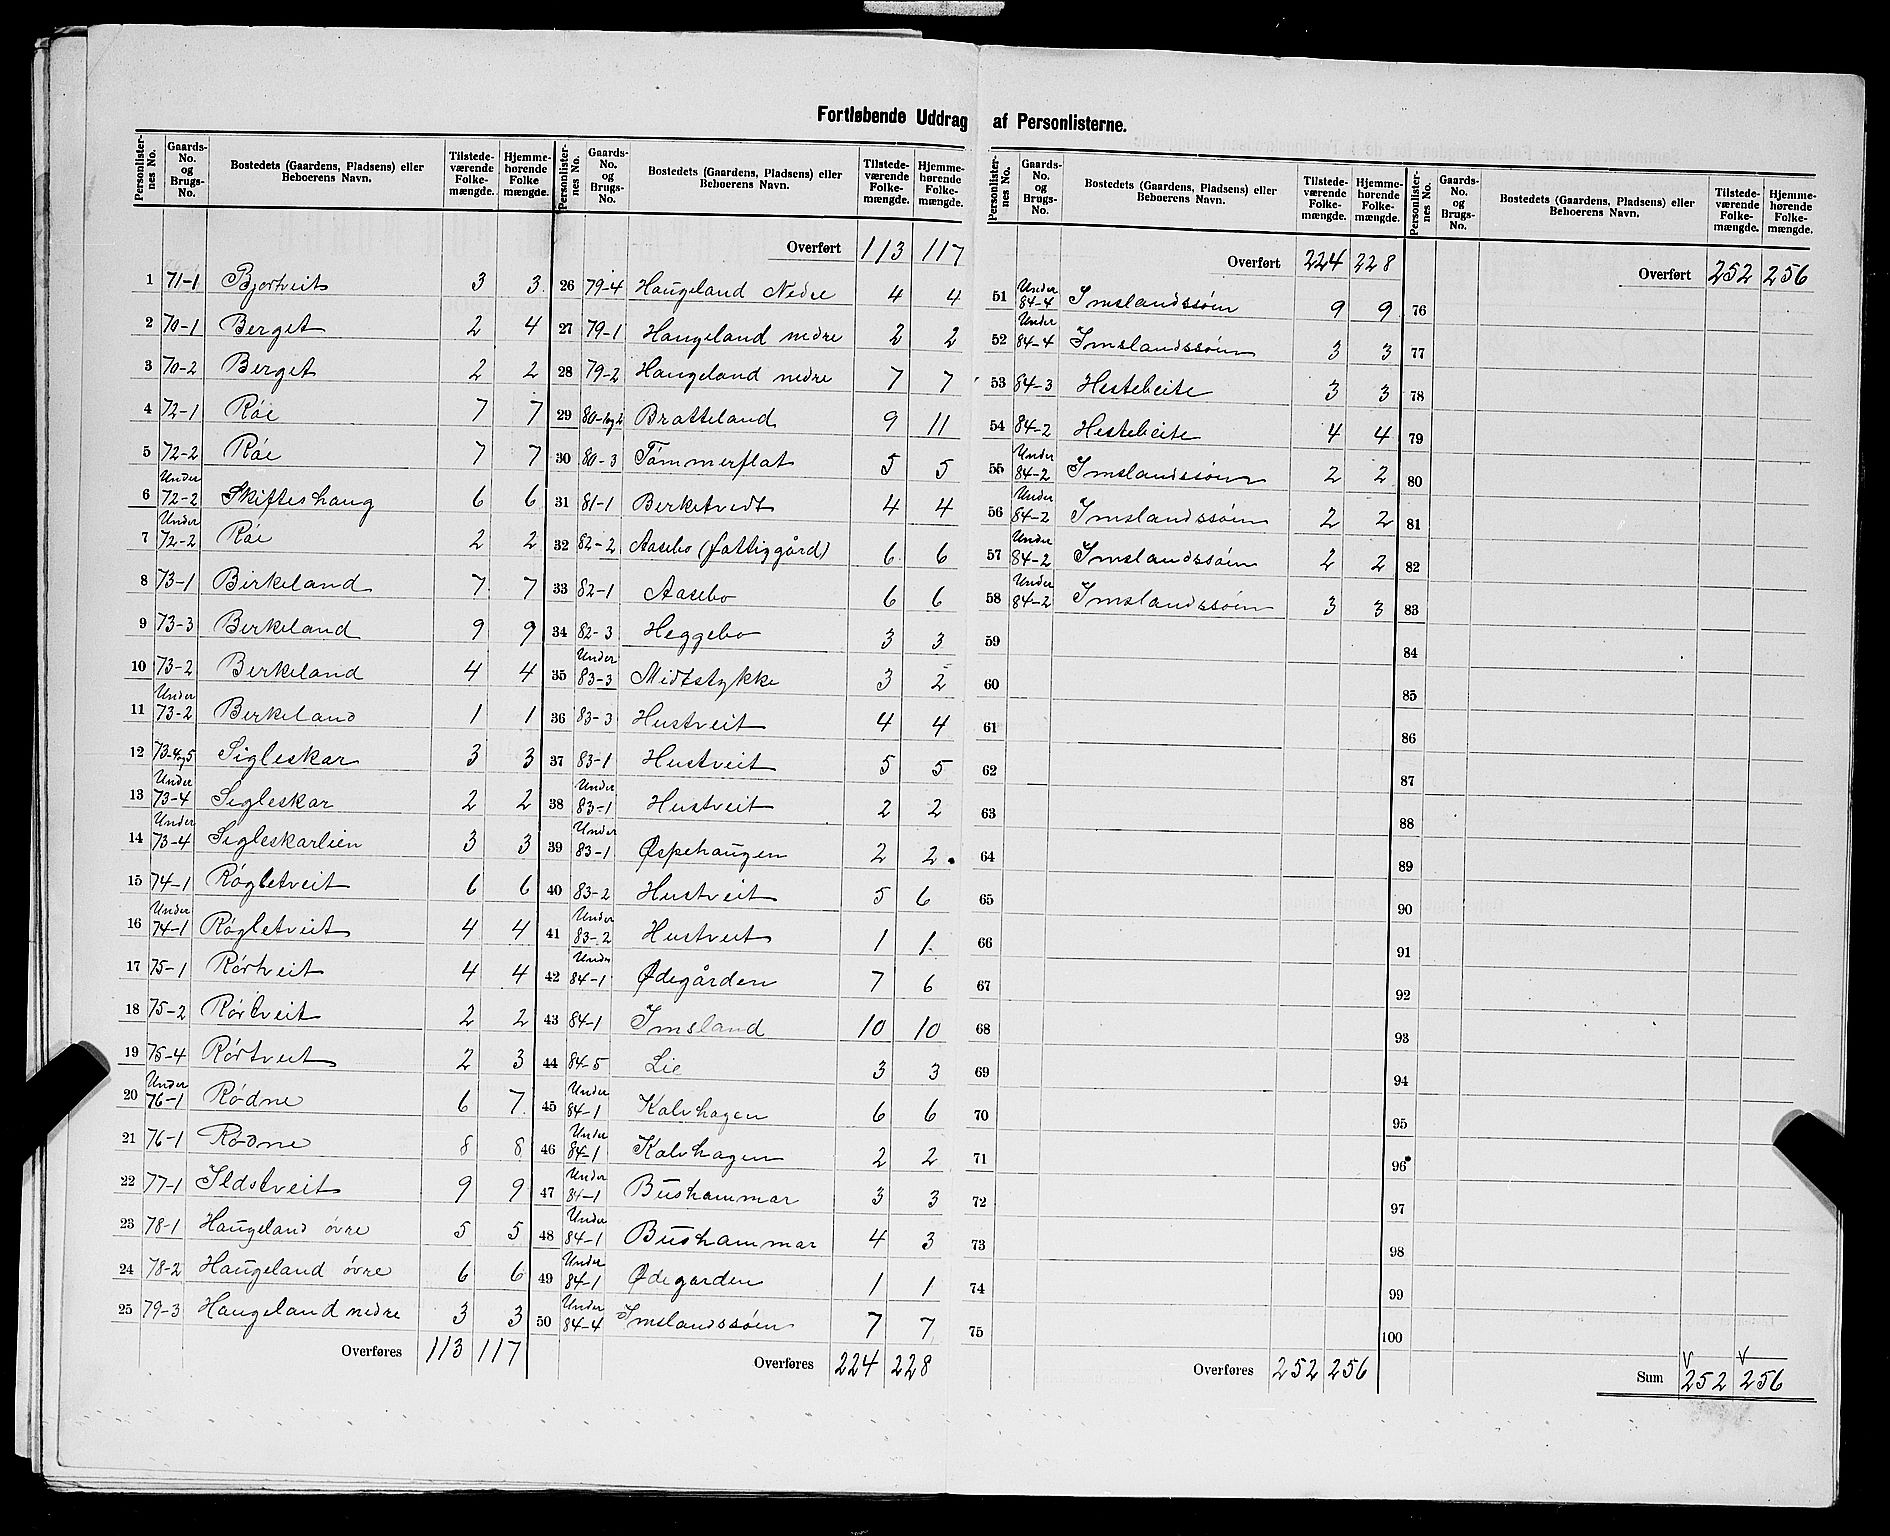 Fortløbende Uddrag af Personlisterne.
Personlister-nes No. | Gaards-No. og Brugs-No. | Bostedets (Gaardens, Pladsens) eller Beboerens Navn. | Tilstede-værende Folke-mængde. | Hjemme-hørende Folke mængde.
1 71-1 Bjortveit 3 3
2 70-1 Berget 2 4
3 70-2 Berget 2 2
4 72-1 Røe 7 7
5 72-2 Røe 7 7
6 Under 72-2 Skifteshaug 6 6
7 Under 72-2 Røe 2 2
8 73-1 Birkeland 7 7
9 73-3 Birkeland 9 9
10 73-2 Birkeland 4 4
11 Under 73-2 Birkeland 1 1
12 73-4og5 Sigleskar 3 3
13 Under 73-4 Sigleskar 2 2
14 Under 73-4 Sigleskarlien 3 3
15 74-1 Røgletveit 6 6
16 Under 74-1 Røgletveit 4 4
17 75-1 Rørtveit 4 4
18 75-2 Rørtveit 2 2
19 75-4 Rørtveit 2 3
20 Under 76-1 Rødne 6 7
21 76-1 Rødne 8 8
22 77-1 Ildstveit 9 9
23 78-1 Haugeland øvre 5 5
24 78-2 Haugeland øvre 6 6
25 79-3 Haugeland nedre 3 3
Overføres 113 117
Personlister-nes No. | Gaards-No. og Brugs-No. | Bostedets (Gaardens, Pladsens) eller Beboerens Navn. | Tilstede-værende Folke-mængde. | Hjemme-hørende Folke-mængde.
Overført 113 117
26 79-4 Haugeland Nedre 4 4
27 79-1 Haugeland nedre 2 2
28 79-2 Haugeland nedre 7 7
29 80-1og2 Bratteland 9 11
30 80-3 Tømmerflat 5 5
31 81-1 Berketvedt 4 4
32 82-2 Aasebo (fattiggård) 6 6
33 82-1 Aasebo 6 6
34 82-3 Heggebo 3 3
35 Under 83-3 Midtstykke 3 2
36 83-3 Hustveit 4 4
37 83-1 Hustveit 5 5
38 Under 83-1 Hustveit 2 2
39 Under 83-1 Øspehaugen 2 2
40 83-2 Hustveit 5 6
41 Under 83-2 Hustveit 1 1
42 Under 84-1 Ødegården 7 6
43 84-1 Imsland 10 10
44 84-5 Lie 3 3
45 Under 84-1 Kalvhagen 6 6
46 Under 84-1 Kalvhagen 2 2
47 Under 84-1 Bushammar 3 3
48 Under 84-1 Bushammar 4 3
49 Under 84-1 Ødegarden 1 1
50 Under 84-4 Imslandssøen 7 7
Overføres 224 228
Personlister-nes No. | Gaards-No. og Brugs-No. | Bostedets (Gaardens, Pladsens) eller Beboerens Navn. | Tilstede-værende Folke-mængde. | Hjemme-hørende Folke-mængde.
Overført 224 228
51 Under 84-4 Imslandssøen 9 9
52 Under 84-4 Imslandssøen 3 3
53 84-3 Hestebeite 3 3
54 84-2 Hestebeite 4 4
55 Under 84-2 Imslandssøen 2 2
56 Under 84-2 Imslandssøen 2 2
57 Under 84-2 Imslandssøen 2 2
58 Under 84-2 Imslandssøen 3 3
59
60
61
62
63
64
65
66
67
68
69
70
71
72
73
74
75
Overføres 252 256
Personlister-nes No. | Gaards-No. og Brugs-No. | Bostedets (Gaardens, Pladsens) eller Beboerens Navn. | Tilstede-værende Folke-mængde. | Hjemme-hørende Folke-mængde.
Overført 252 256
76
77
78
79
80
81
82
83
84
85
86
87
88
89
90
91
92
93
94
95
96
97
98
99
100
Sum 252 256